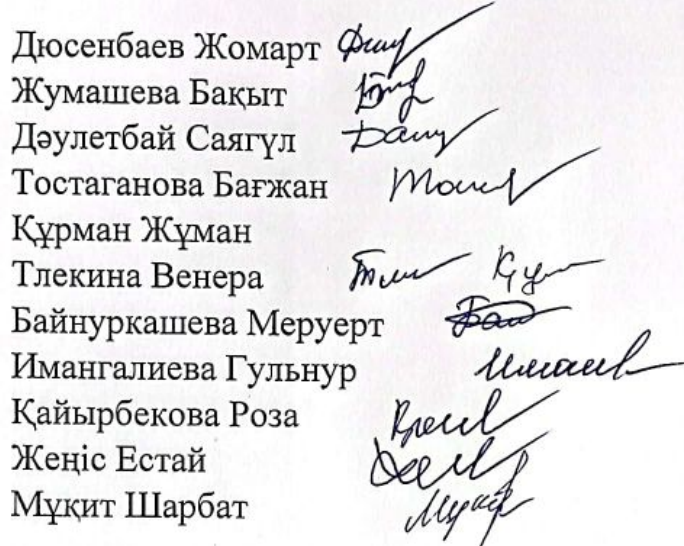 Дюсенбаев Жомарт
Жумашева Бақыт
Дәулетбай Саягүл
Тостаганова Бағжан
Құрман Жұман
Тлекина Венера
Байнуркашева Меруерт
Имангалиева Гульнур
Қайырбекова Роза
Жеңіс Естай
Мұқит Шарбат